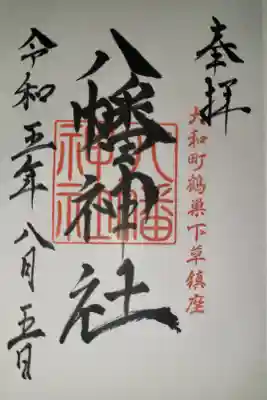 奉拝
大和町鶴巣下草鎮座
八幡神社
八幡
神社
令和五年八月五日